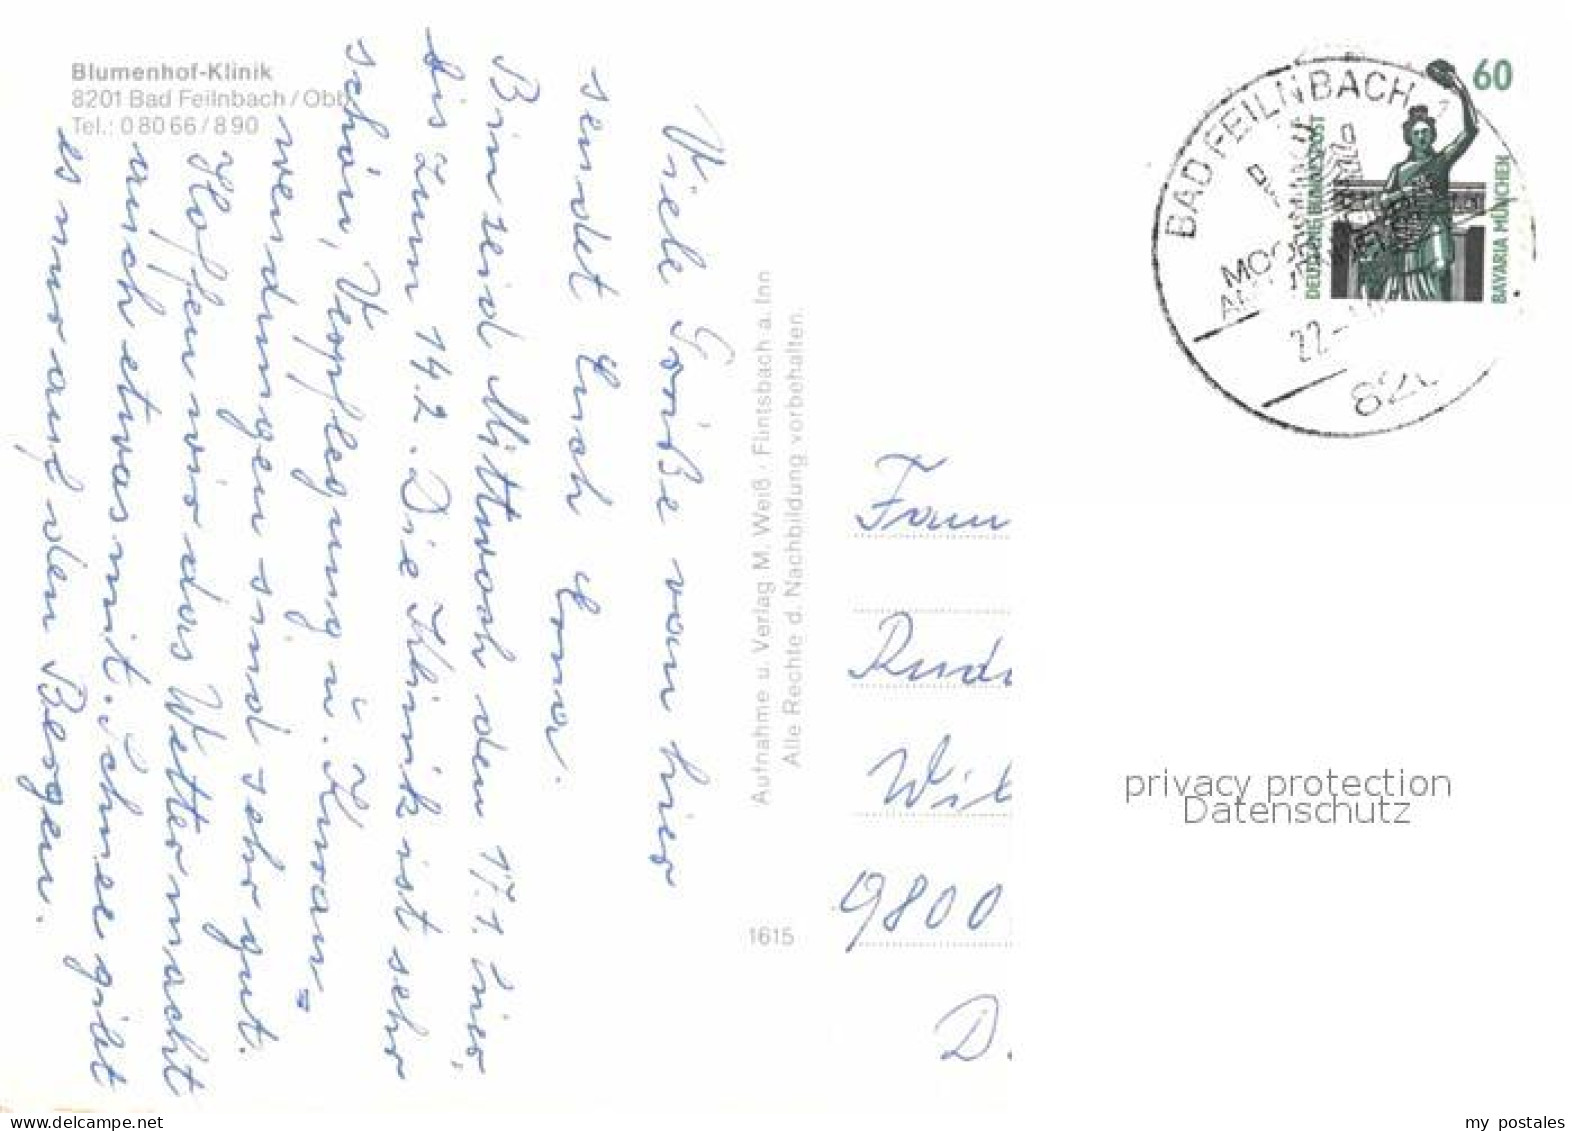 Blumenhof-Klinik
8201 Bad Feilnbach / Obb
Tel.: 0 80 66 / 8 90
Viele Grüße von hier
sendet Euch Erna.
Bin seid Mittwoch den 17.1. hier,
bis zum 14.2. Die Klinik ist sehr
schön, Verpflegung u. Kuran=
wendungen sind sehr gut.
Hoffen wir das Wetter macht
auch etwas mit. Schnee gibt
es nur auf den Bergen.
Aufnahme u. Verlag M. Weiß · Flintsbach a. Inn
Alle Rechte d. Nachbildung vorbehalten.
1615
60
DEUTSCHE BUNDESPOST
BAVARIA MÜNCHEN
BAD FEILNBACH
22
820
Frau
9800
D.
privacy protection
Datenschutz
www.delcampe.net
my_postales